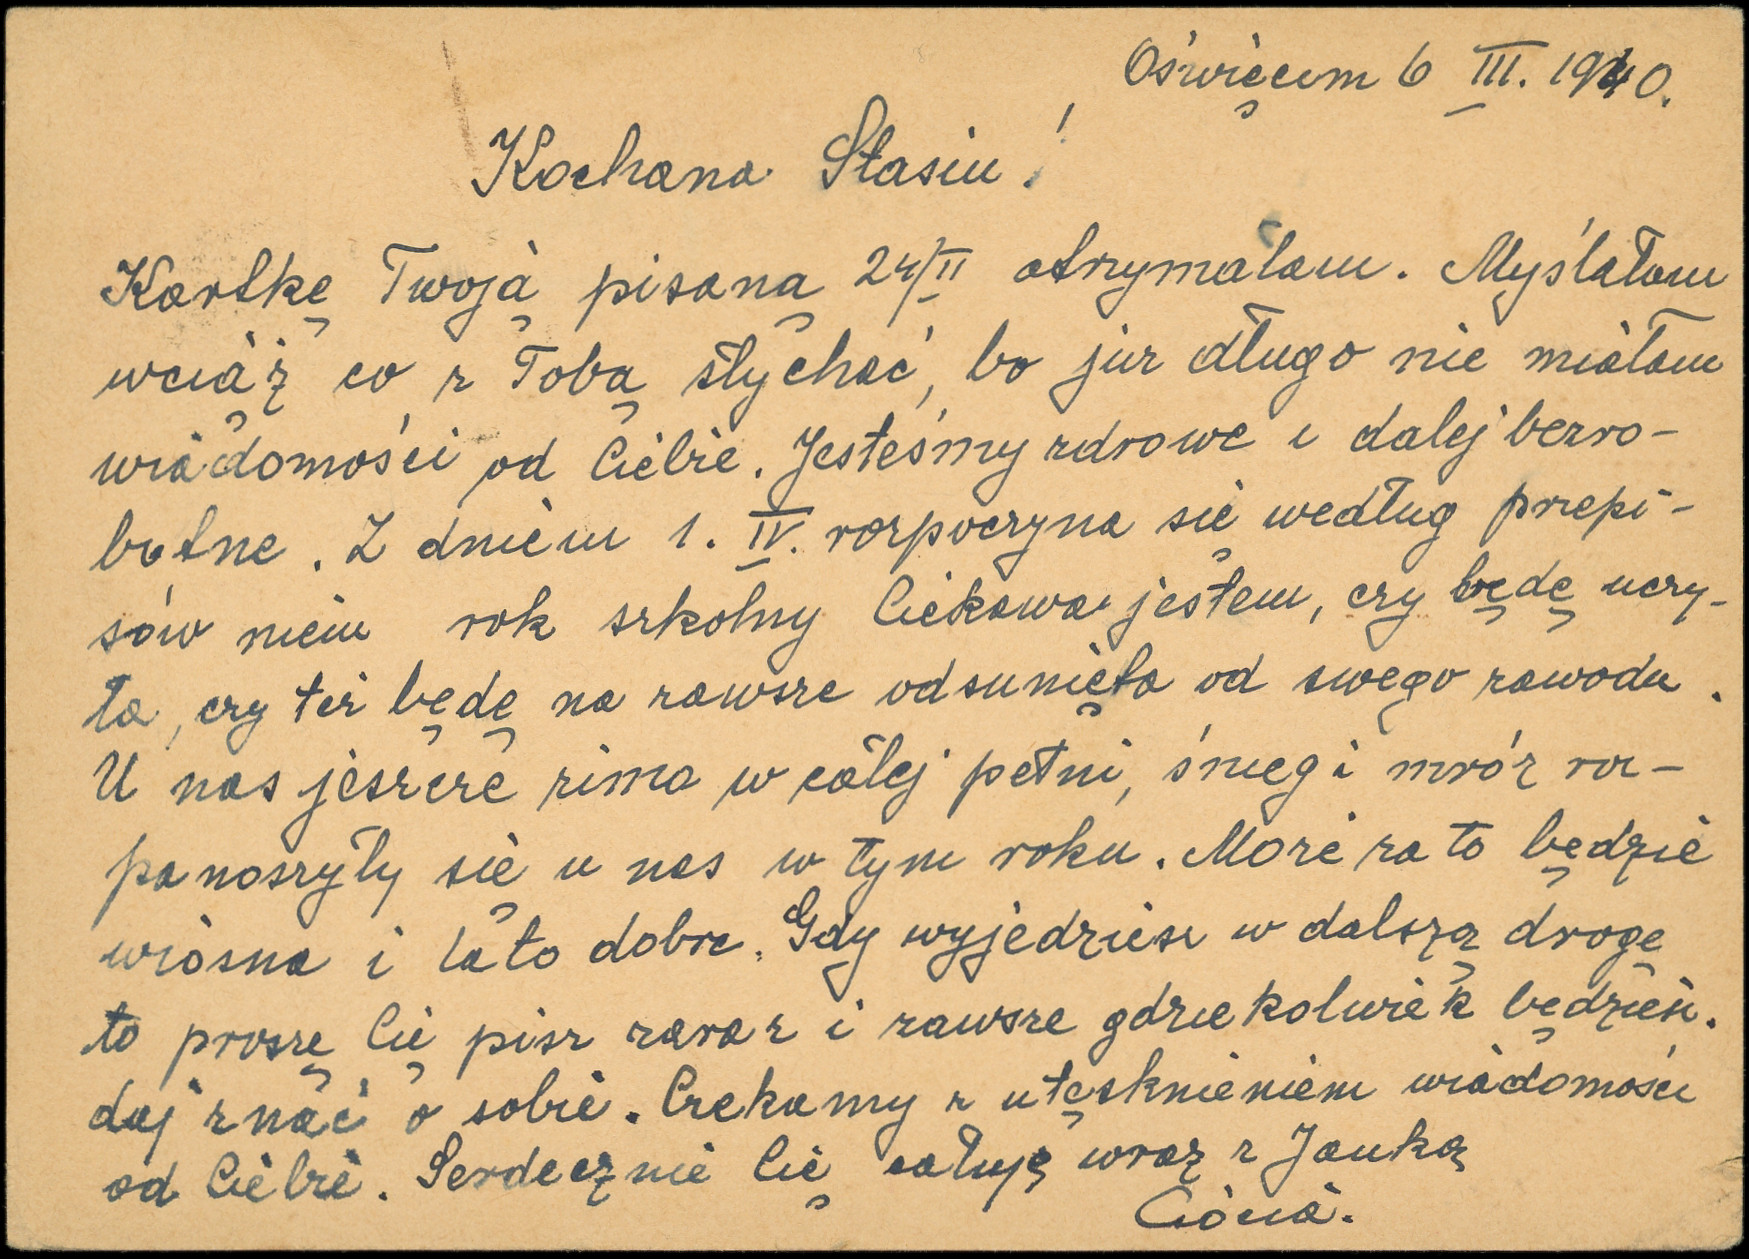 Oświęcim 6 III. 1940.
Kochana Stasiu!
Kartkę Twoją pisaną 24/II otrzymałam. Myślałam
wciąż co z Tobą słychać, bo już długo nie miałam
wiadomości od Ciebie. Jesteśmy zdrowe i dalej bezro-
botne. Z dniem 1. IV. rozpoczyna się według przepi-
sów niem rok szkolny Ciekawa jestem, czy będę uczy-
ła, czy też będę na zawsze odsunięta od swego zawodu.
U nas jeszcze zima w całej pełni, śnieg i mróz roz-
panoszyły się u nas w tym roku. Może za to będzie
wiosna i lato dobre. Gdy wyjedziesz w dalszą drogę
to proszę Cię pisz zaraz i zawsze gdziekolwiek będziesz.
daj znać o sobie. Czekamy z utęsknieniem wiadomości
od Ciebie. Serdecznie Cię całuję wraz z Janką
Ciocia.